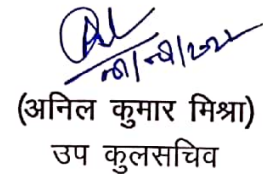 (अनिल कुमार मिश्रा)
उप कुलसचिव